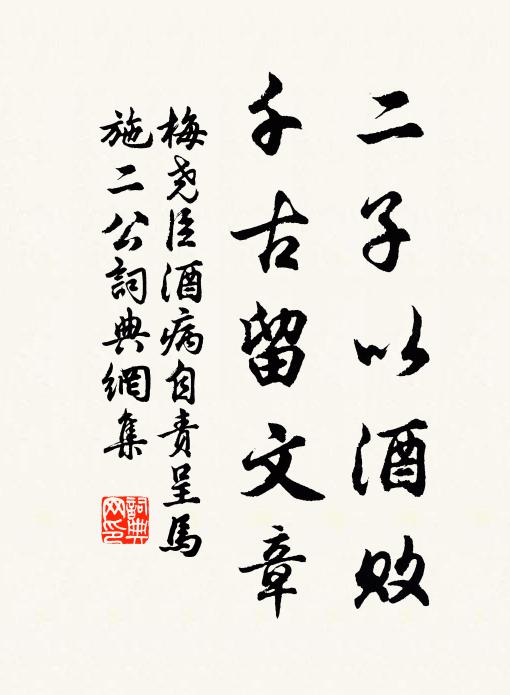 二子以酒敗
千古留文章
梅堯臣酒病自責呈馬
施二公詞典網集
詞典
網印